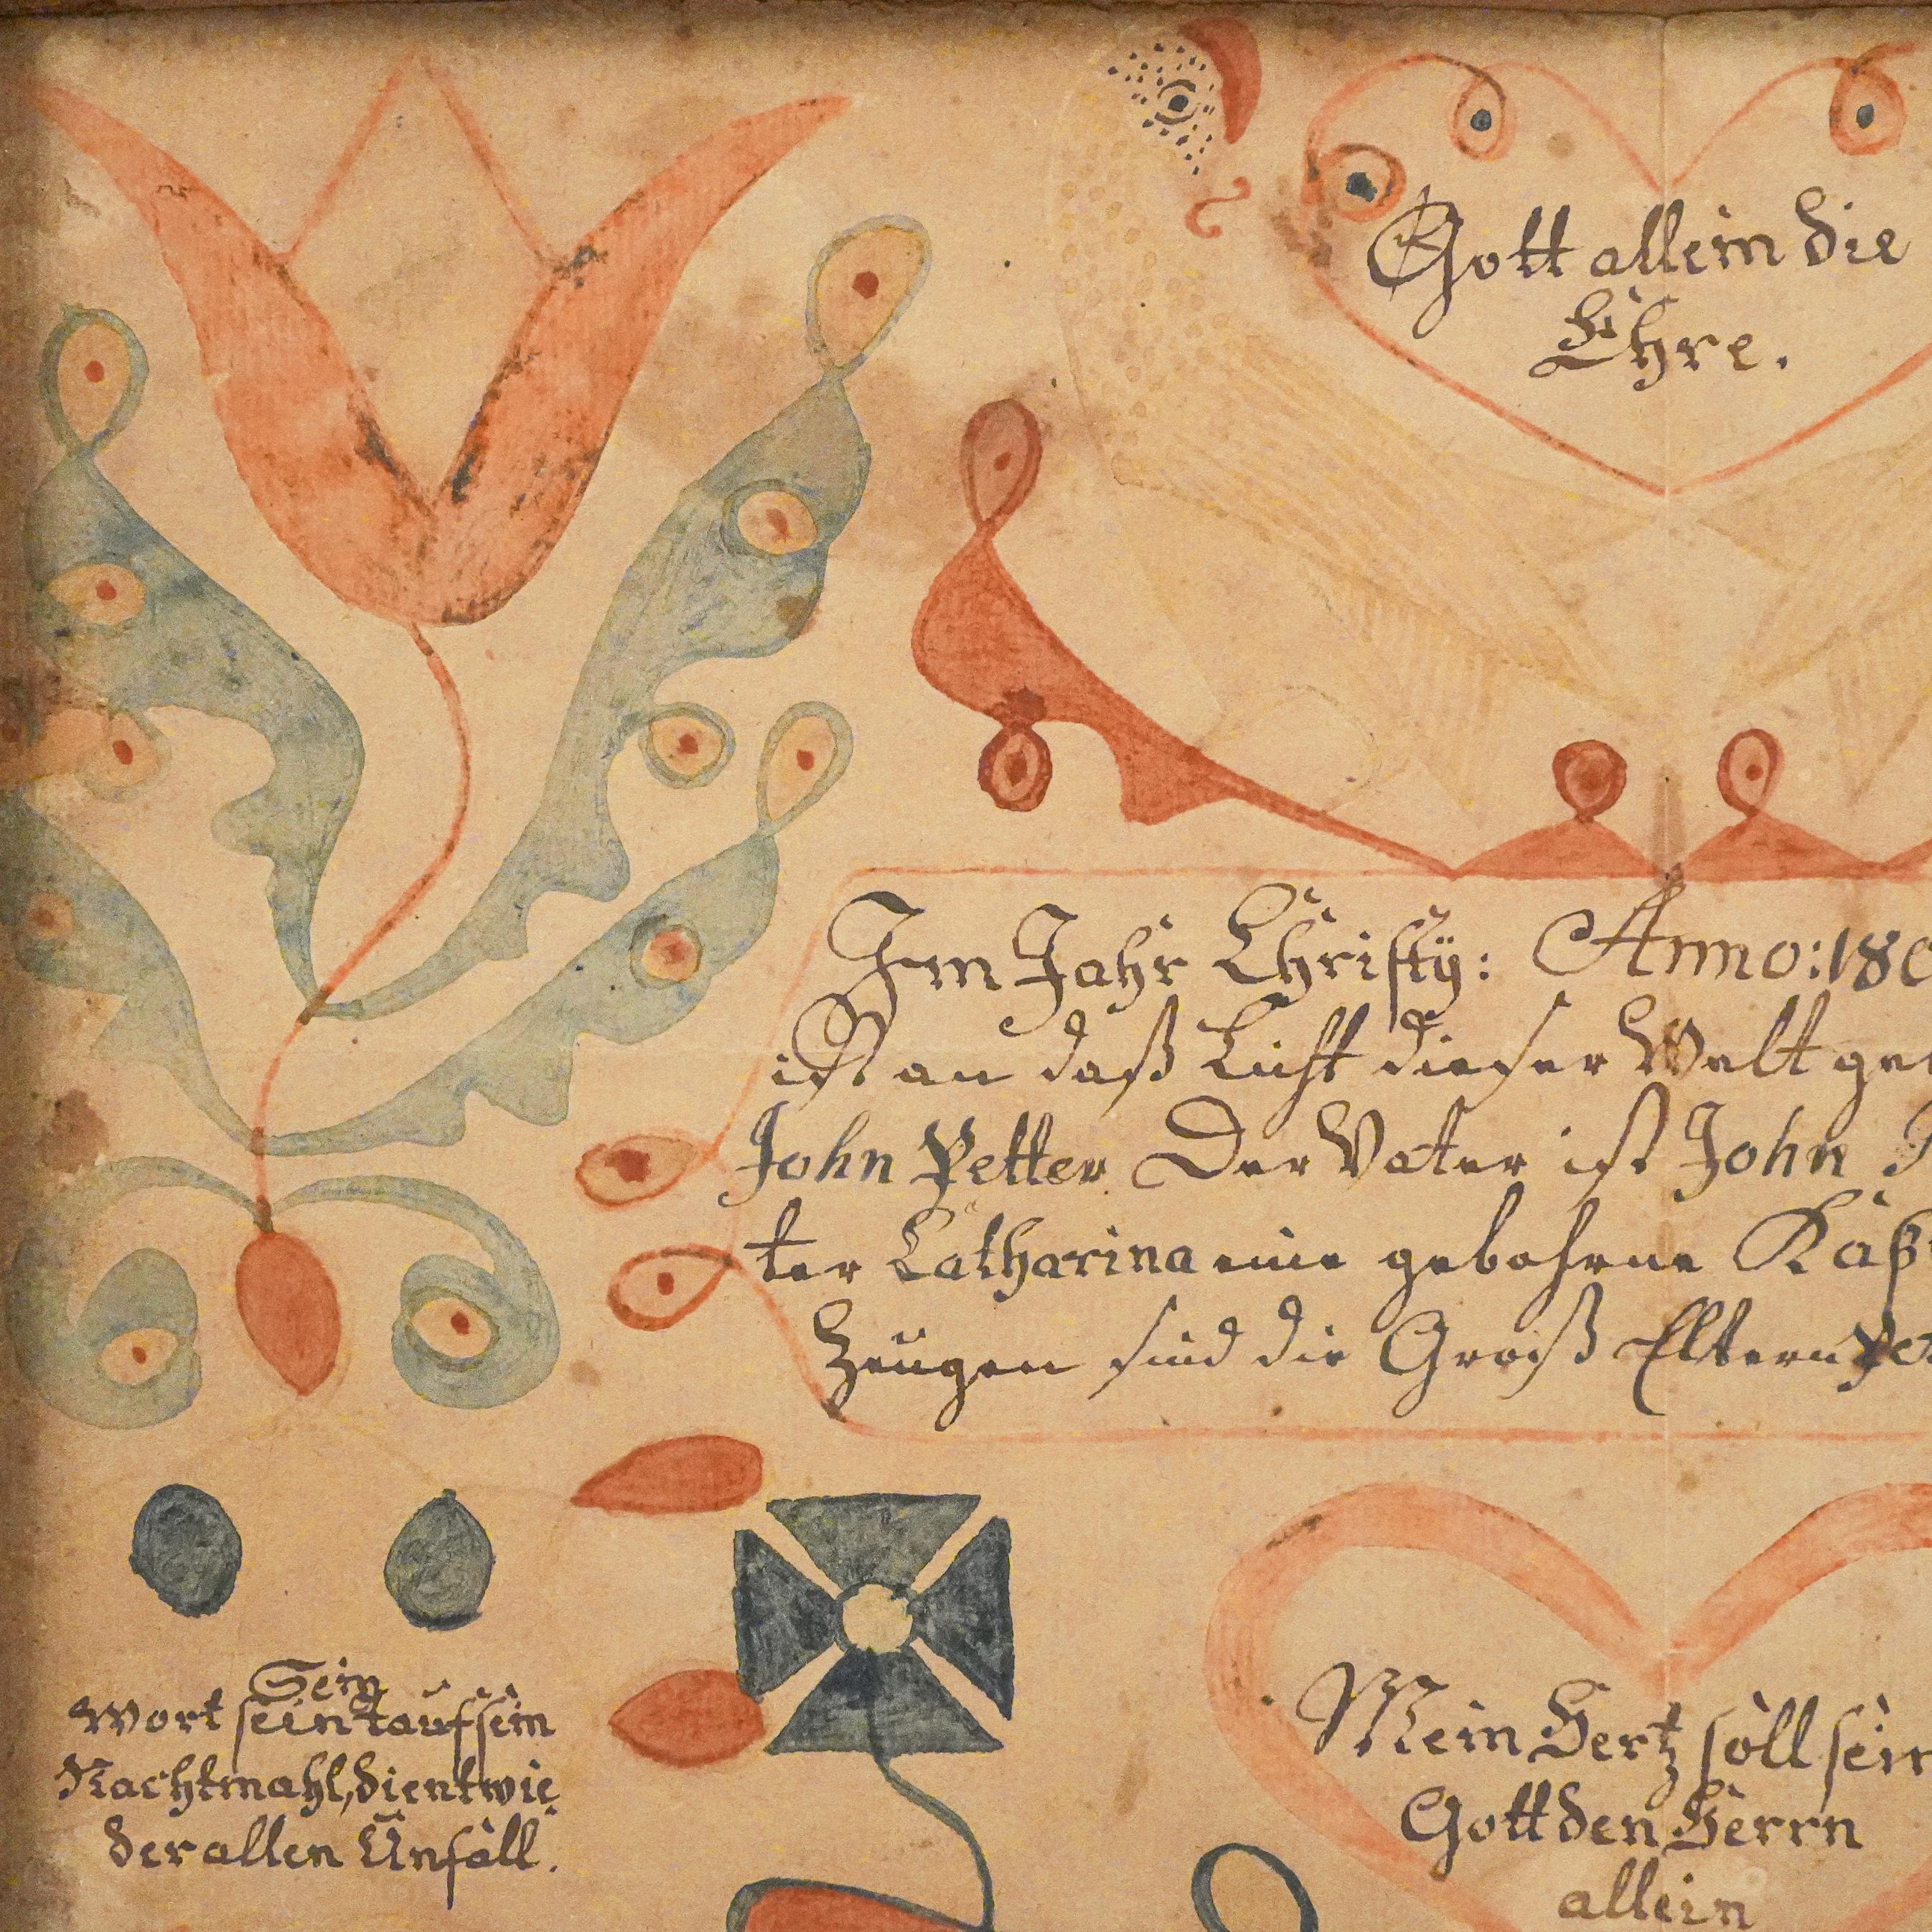 Gott allein die
Ehre.
Im Jahr Christÿ: Anno: 180
ist an daß Licht dieser Welt ge
John Petter Der Vater ist John
ter Catharina eine gebohrne Käß
Zeugen sind die Groß Eltern Pe
Sein
Wort sein tauf sein
Nachtmahl, dient wie
der allen Unfall.
Mein Hertz soll sein
Gott den Herrn
allein